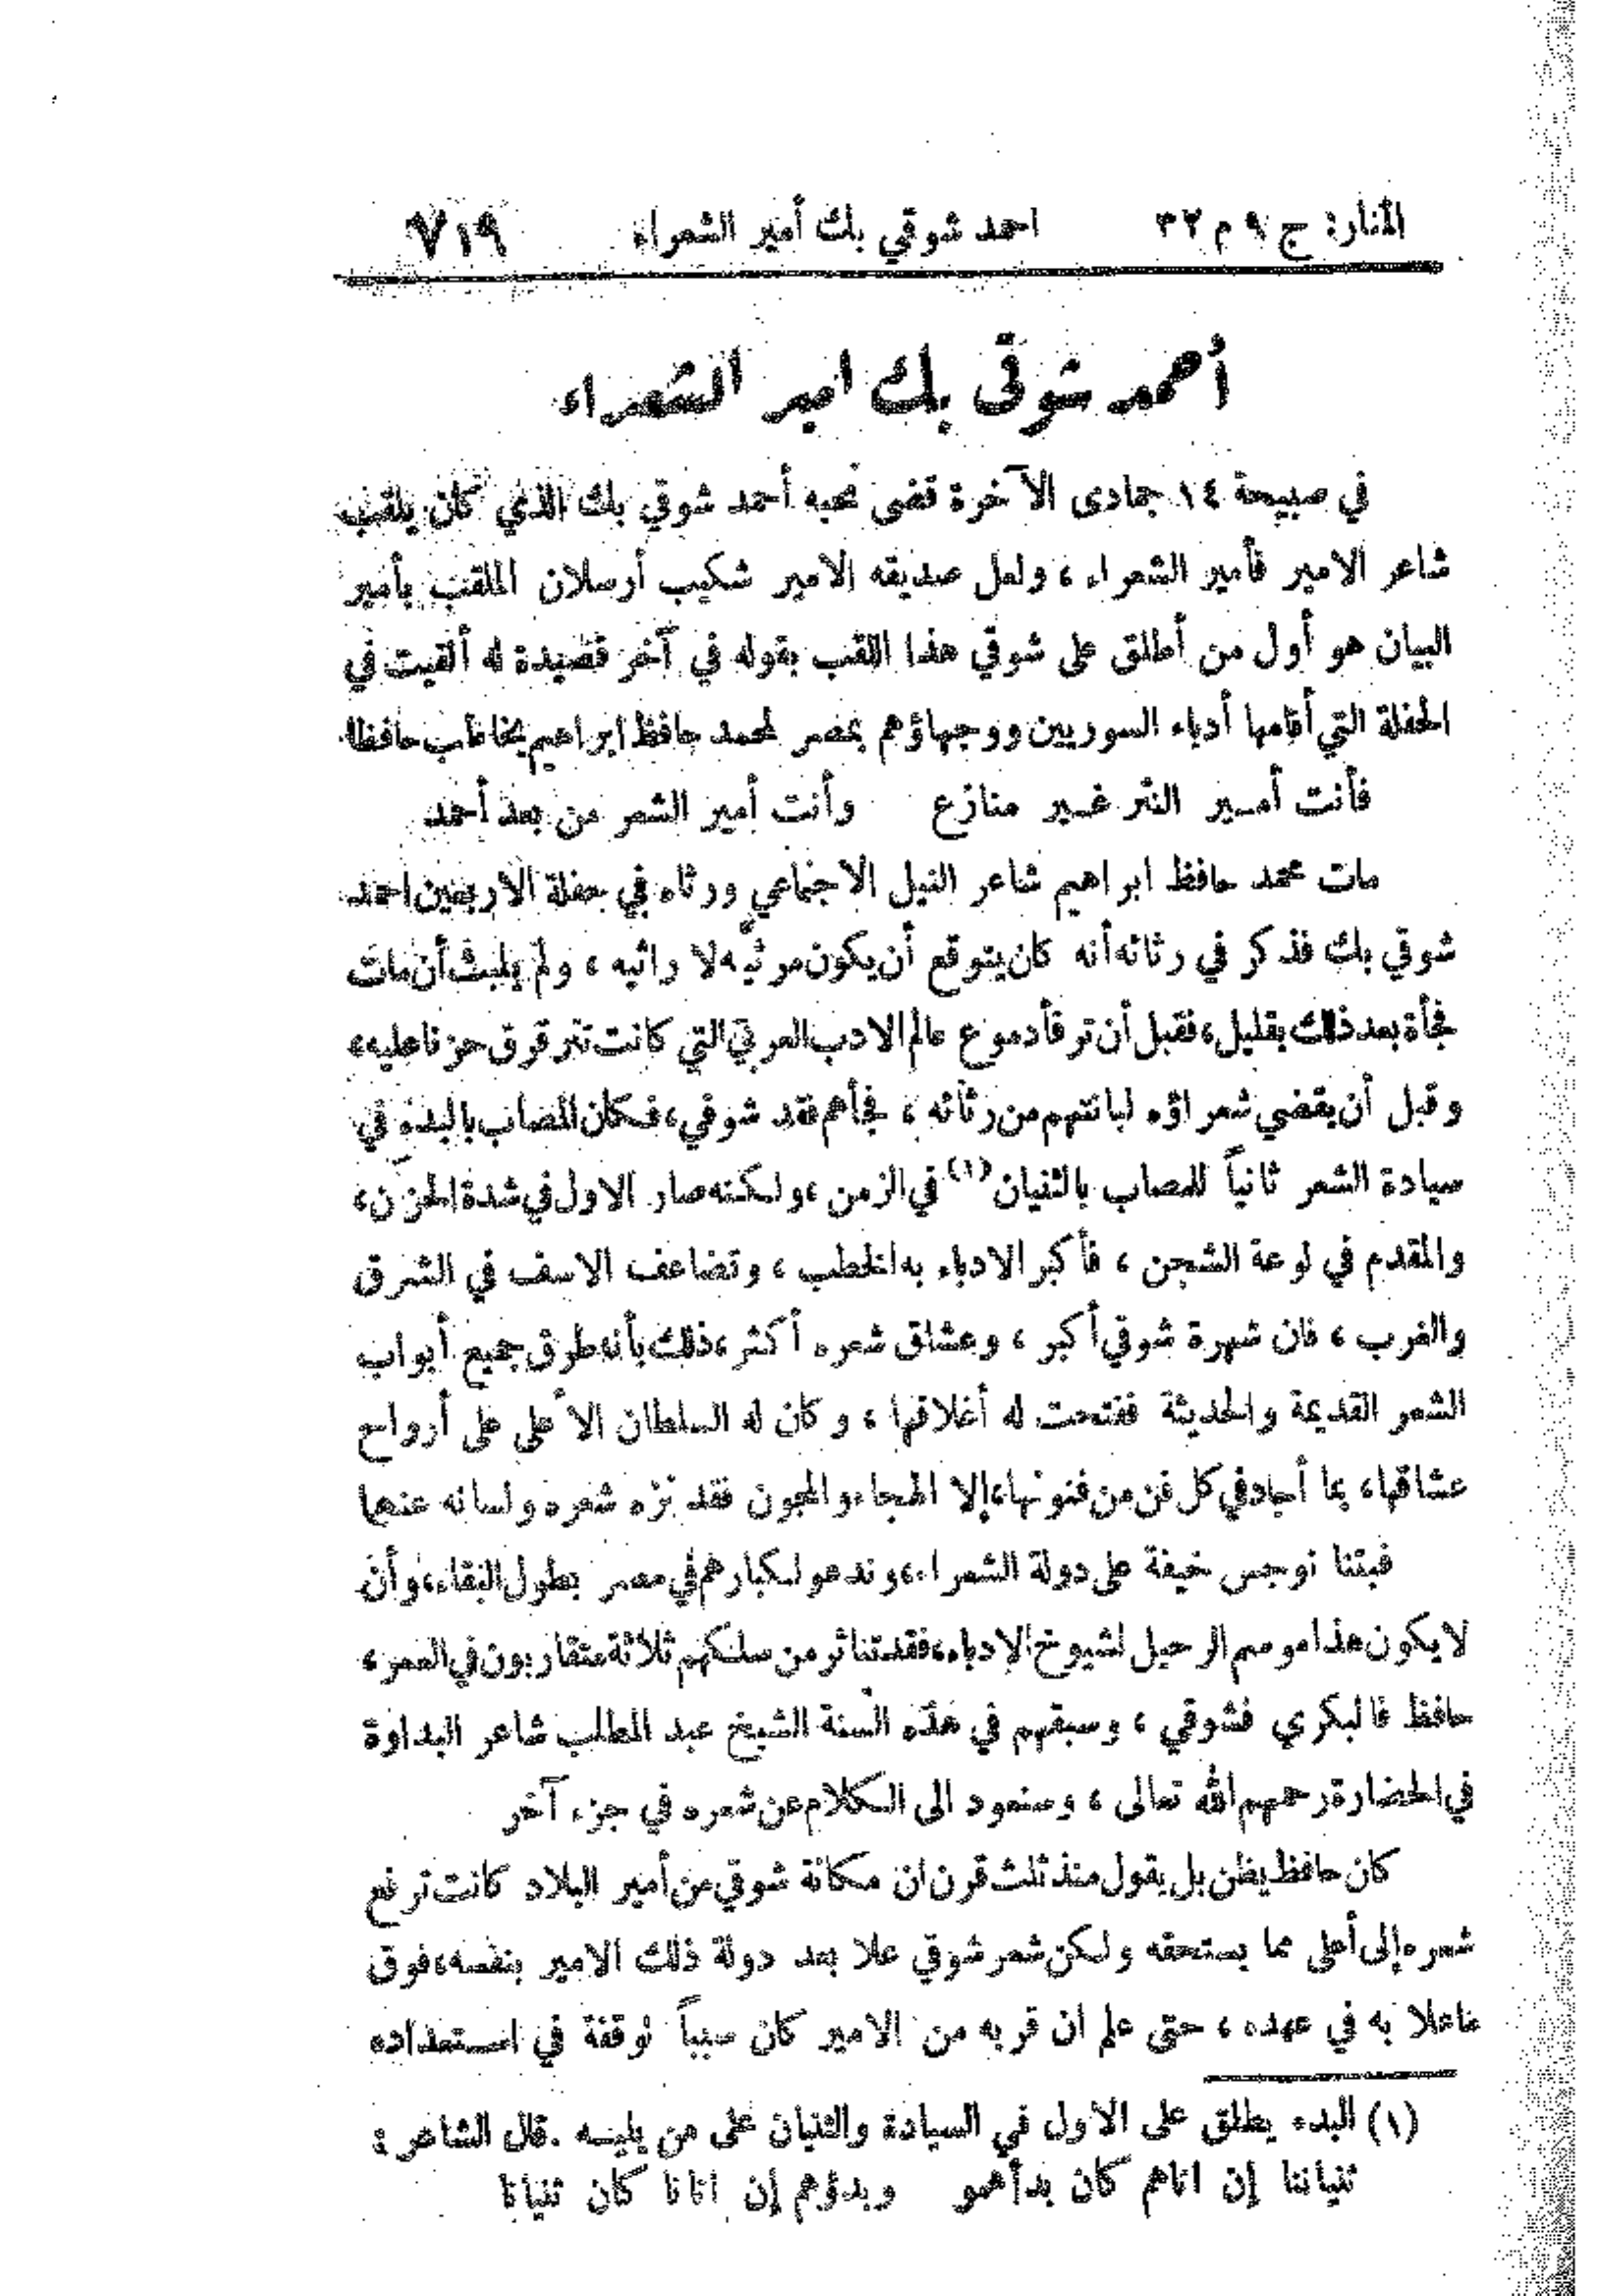 المنار: ج ٩ م ٣٢ احمد شوقي بك أمير الشعراء ٧١٩
أحمد شوقي بك امير الشعراء
في صبيحة ١٤ جمادى الآخرة قضى نحبه أحمد شوقي بك الذي كان يلقب
شاعر الامير فأمير الشعراء ، ولعل صديقه الامير شكيب أرسلان الملقب بأمير
البيان هو أول من أطلق على شوقي هذا اللقب بقوله في آخر قصيدة له ألقيت في
الحفلة التي أقامها أدباء السوريين ووجهاؤهم بمصر لمحمد حافظ ابراهيم يخاطب حافظا
فأنت أمــير النثر غــير منازع وأنت أمير الشعر من بعد أحمد
مات محمد حافظ ابراهيم شاعر النيل الاجتماعي ورثاه في حفلة الاربعين احمد
شوقي بك فذكر في رثائه أنه كان يتوقع أن يكون مرثيَّه لا راثيه ، ولم يلبث أن مات
فجأة بعد ذلك بقليل ، فقبل أن ترقأ دموع عالم الادب العربي التي كانت تترقرق حزنا عليه ،
وقبل أن يقضي شعراؤه لبانتهم من رثائه ، فجأهم فقد شوقي ، فكان المصاب بالبدء في
سيادة الشعر ثانياً للمصاب بالثنيان (١) في الزمن ، ولكنه صار الاول في شدة الحزن ،
والمقدم في لوعة الشجن ، فأكبر الادباء به الخطب ، وتضاعف الاسف في الشرق
والغرب ، فان شهرة شوقي أكبر ، وعشاق شعره أكثر ، ذلك بأنه طرق جميع أبواب
الشعر القديمة والحديثة ففتحت له أغلاقها ، وكان له السلطان الأعلى على أرواح
عشاقها ، بما أجاد في كل فن من فنونها ، إلا الهجاء والمجون فقد نزه شعره ولسانه عنهما
فبتنا نوجس خيفة على دولة الشعراء ، وندعو لكبارهم في مصر بطول البقاء ، وأن
لا يكون هذا موسم الرحيل لشيوخ الادباء ، فقد تناثر من سلكهم ثلاثة متقاربون في العمر ،
حافظ فالبكري فشوقي ، وسبقهم في هذه السنة الشيخ عبد المطلب شاعر البداوة
في الحضارة رحمهم الله تعالى ، وسنعود الى الكلام عن شعره في جزء آخر
كان حافظ يظن بل يقول منذ ثلث قرن ان مكانة شوقي من أمير البلاد كانت ترفع
شعره إلى أعلى مما يستحقه ولكن شعر شوقي علا بعد دولة ذلك الامير بنفسه ، فوق
ما علا به في عهده ، حتى علم ان قربه من الامير كان سبباً لوقفة في استعداده
(١) البدء يطلق على الاول في السيادة والثنيان على من يليــه . قال الشاعر :
ثنياننا إن اتاهم كان بدأهمو وبدؤهم إن اتانا كان ثنيانا